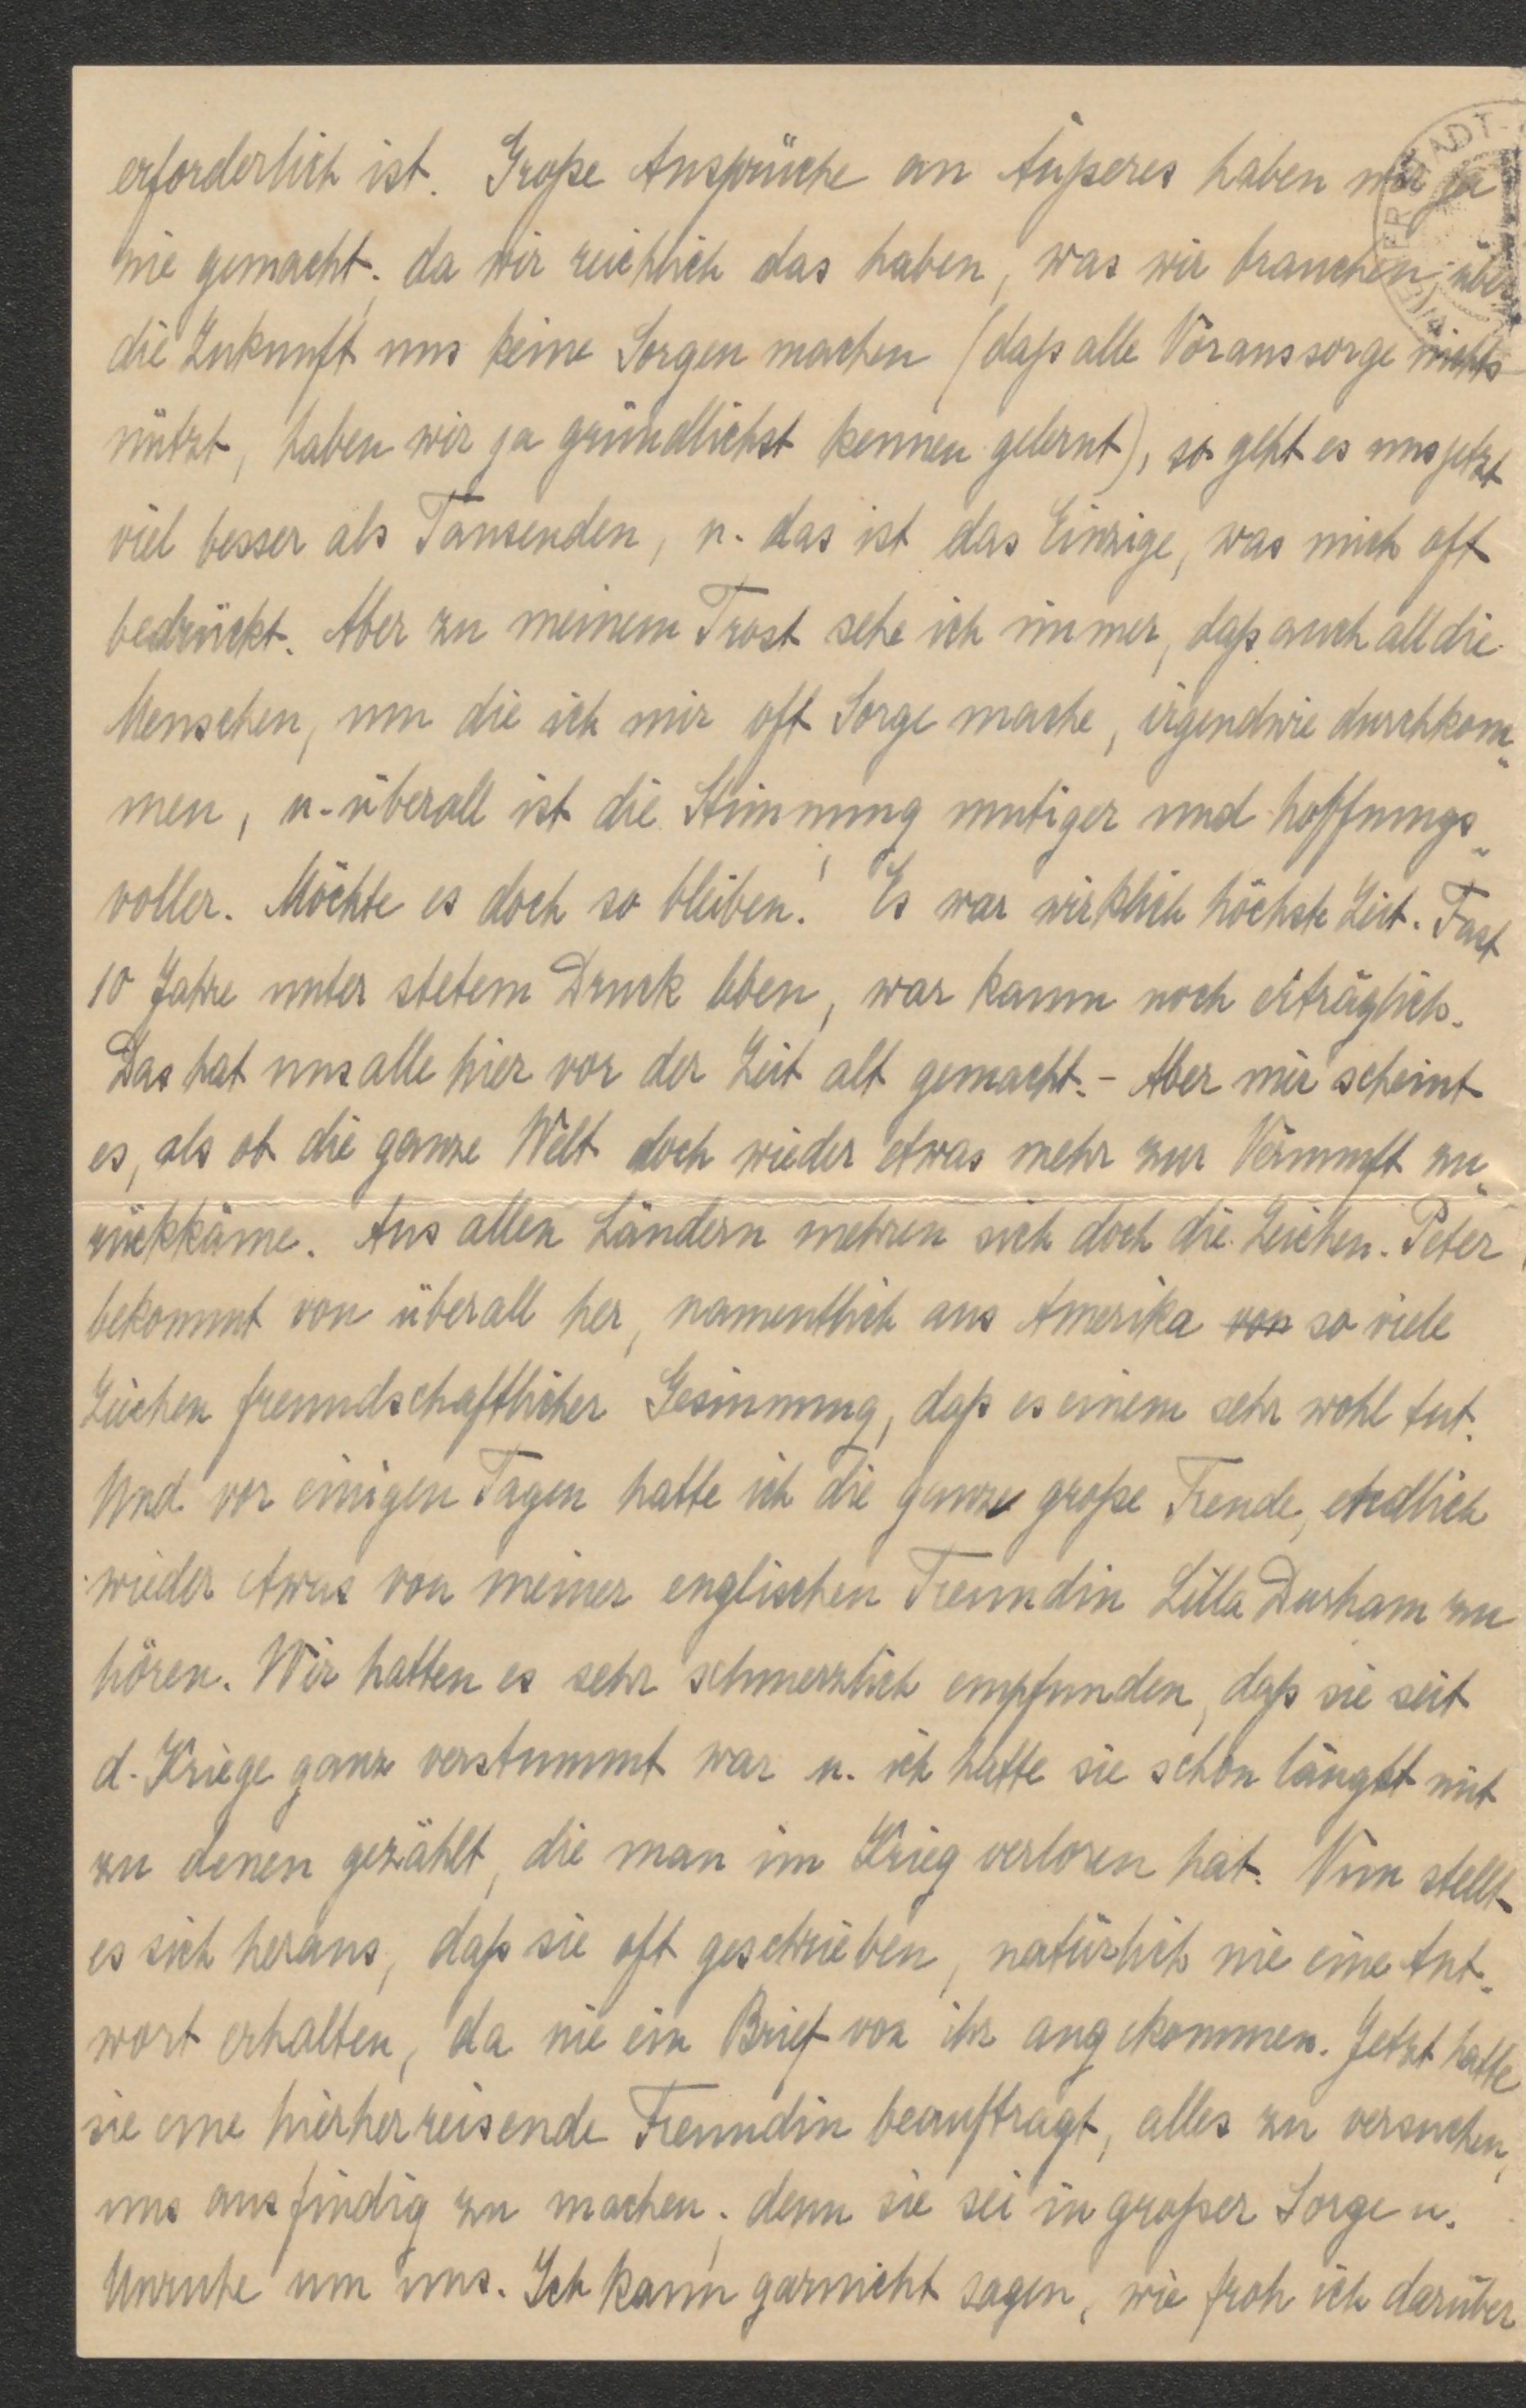 erforderlich ist. Große Ansprüche an Äußeres haben wir ja
nie gemacht; da wir reichlich das haben, was wir brauchen, über
die Zukunft uns keine Sorgen machen (daß alle Voraussorge nichts
nützt, haben wir ja gründlichst kennen gelernt), so geht es uns jetzt
viel besser als Tausenden, u. das ist das Einzige, was mich oft
bedrückt. Aber zu meinem Trost sehe ich immer, daß auch all die
Menschen, um die ich mir oft Sorge mache, irgendwie durchkom„
men, u. überall ist die Stimmung mutiger und hoffnungs„
voller. Möchte es doch so bleiben! Es war wirklich höchste Zeit. Fast
10 Jahre unter stetem Druck leben, war kaum noch erträglich.
Das hat uns alle hier vor der Zeit alt gemacht. – Aber mir scheint
es, als ob die ganze Welt doch wieder etwas mehr zur Vernunft zu„
rückkäme. Aus allen Ländern mehren sich doch die Zeichen. Peter
bekommt von überall her, namentlich aus Amerika von so viele
Zeichen freundschaftlicher Gesinnung, daß es einem sehr wohl tut.
Und vor einigen Tagen hatte ich die ganze große Freude, endlich
wieder etwas von meiner englischen Freundin Lilla Durham zu
hören. Wir hatten es sehr schmerzlich empfunden, daß sie seit
d. Kriege ganz verstummt war u. ich hatte sie schon längst mit
zu denen gezählt, die man im Krieg verloren hat. Nun stellt
es sich heraus, daß sie oft geschrieben, natürlich nie eine Ant„
wort erhalten, da nie ein Brief von ihr angekommen. Jetzt hatte
sie eine hierherreisende Freundin beauftragt, alles zu versuchen,
uns ausfindig zu machen; denn sie sei in großer Sorge u.
Unruhe um uns. Ich kann garnicht sagen, wie froh ich darüber